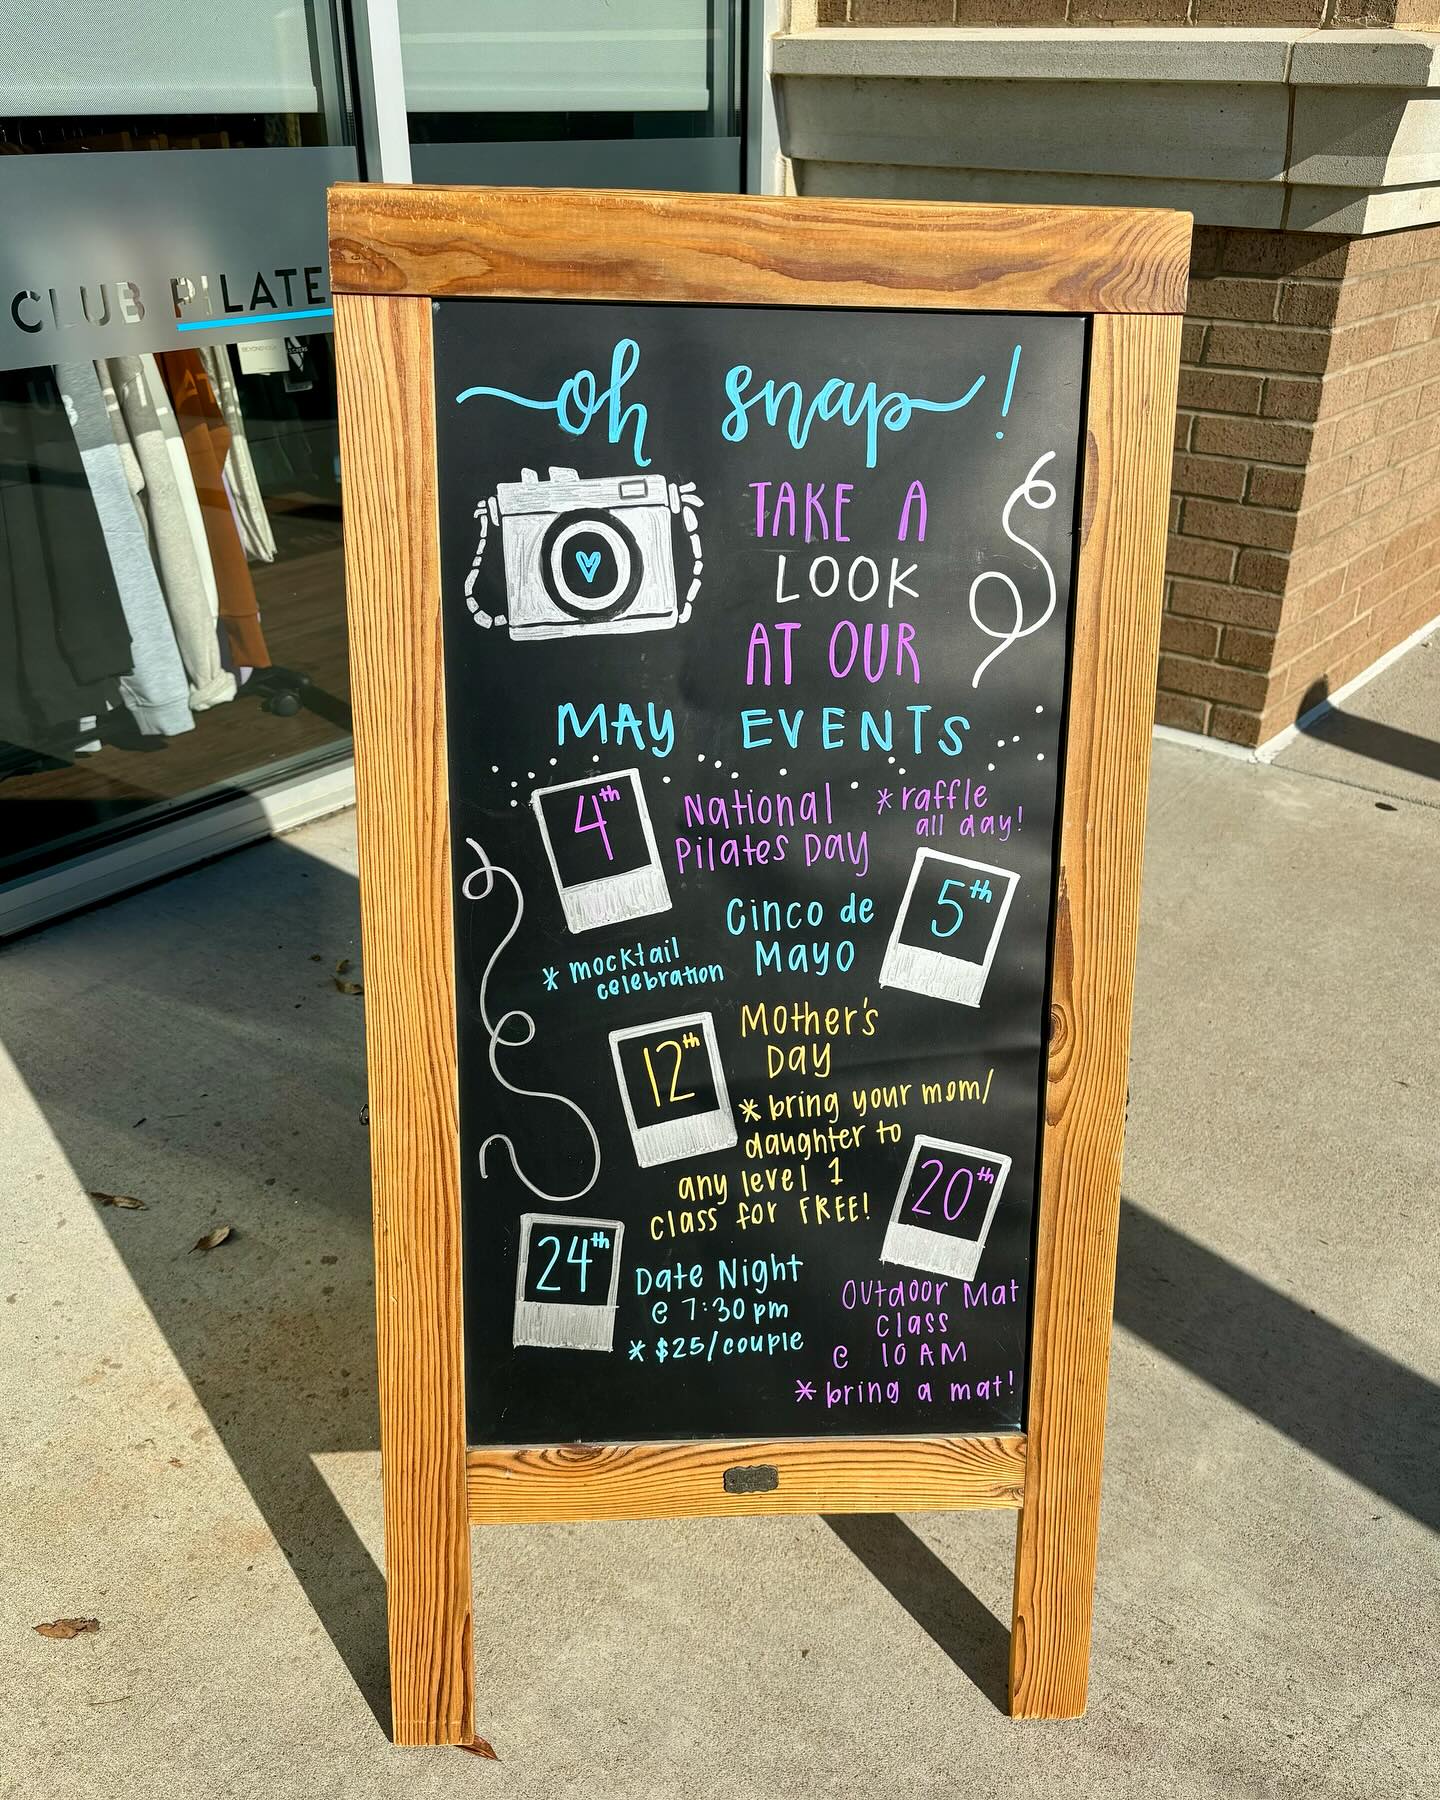 CLUB PILATE
oh snap!
TAKE A
LOOK
AT OUR
MAY EVENTS
4th
National
Pilates Day
*raffle
all day!
5th
Cinco de
Mayo
* mocktail
celebration
12th
Mother's
Day
* bring your mom/
daughter to
any level 1
class for FREE!
20th
Outdoor Mat
Class
@ 10 AM
* bring a mat!
24th
Date Night
@ 7:30pm
* $25/couple